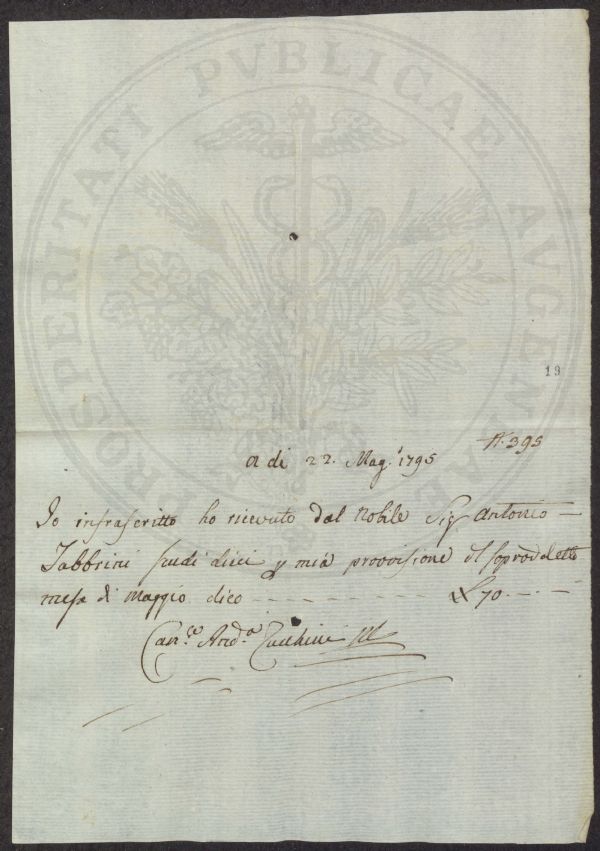 PROSPERITATI PVBLICAE AVGENDAE
19
N. 395
A di 22. Mag.º 1795
Io infrascritto ho ricevuto dal Nobile Sig Antonio
Fabbrini scudi dieci p mia provvisione del soprad detto
mese di Maggio dico - - - - - - - £ 70 - - - -
Can.co And.a Zucchini